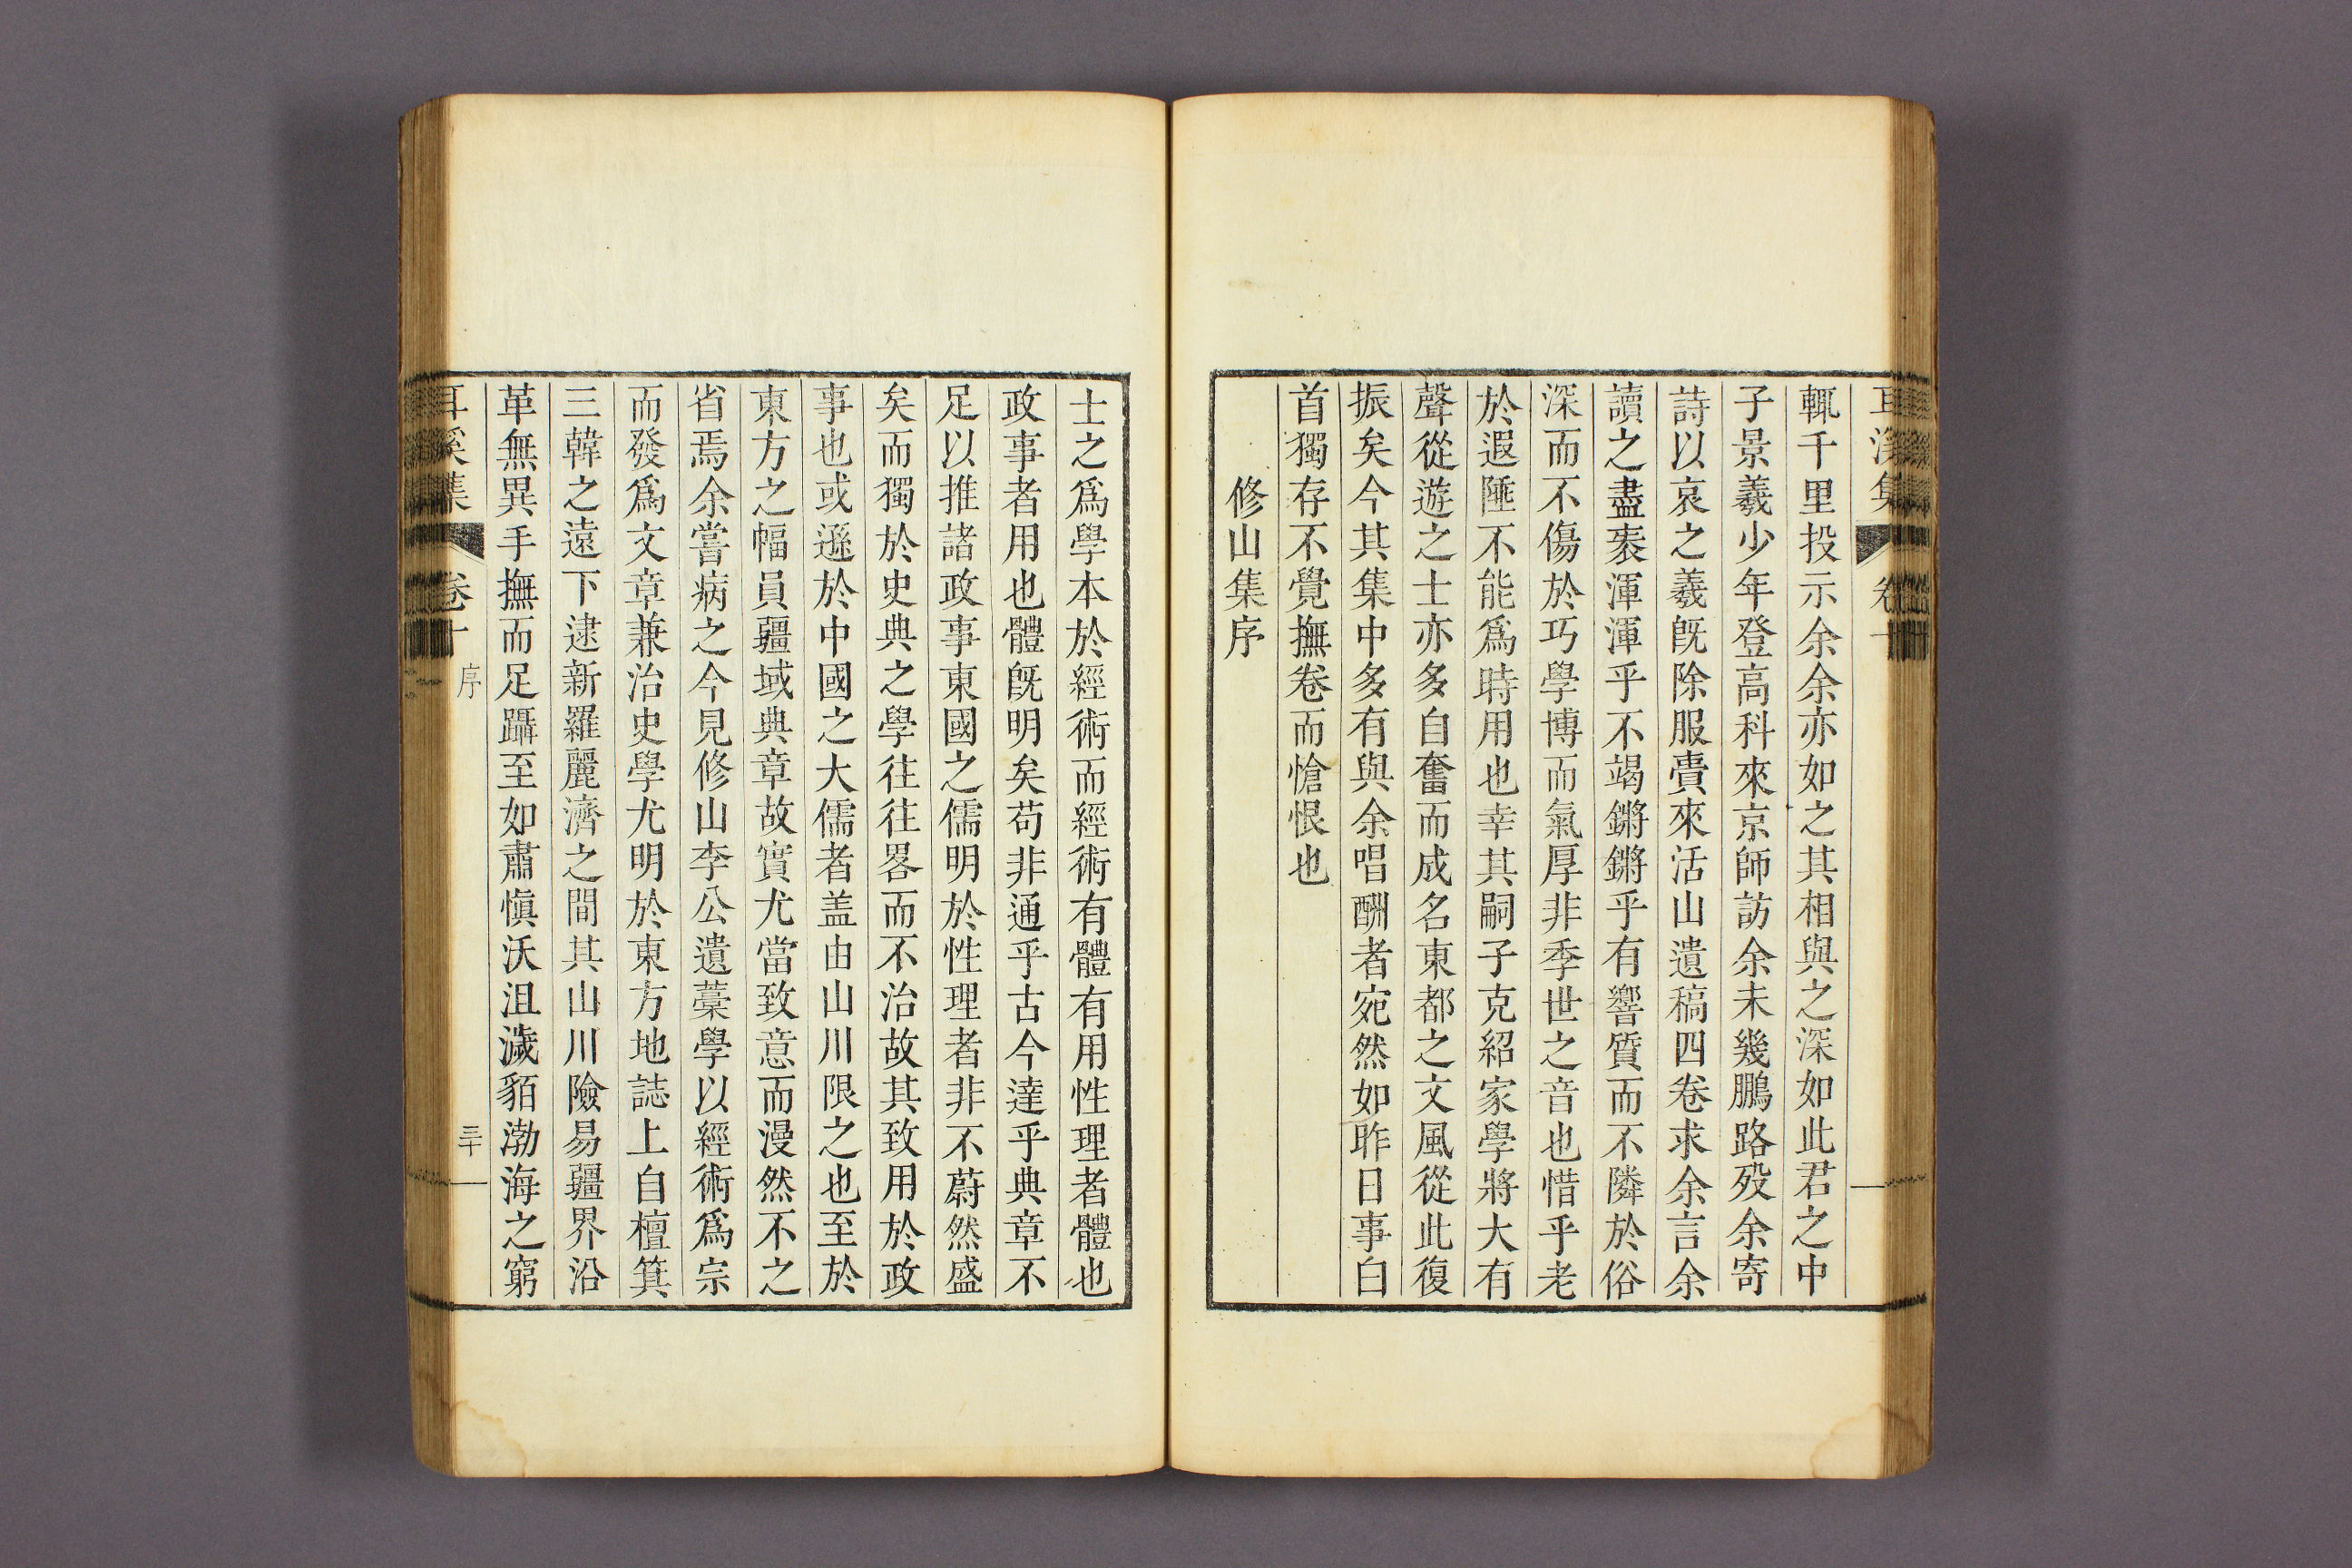 耳溪集 卷十
輒千里投示余余亦如之其相與之深如此君之中
子景羲少年登高科來京師訪余未幾鵬路歿余寄
詩以哀之羲旣除服賷來活山遺稿四卷求余言余
讀之盡袠渾渾乎不竭鏘鏘乎有響質而不隣於俗
深而不傷於巧學博而氣厚非季世之音也惜乎老
於遐陲不能爲時用也幸其嗣子克紹家學將大有
聲從遊之士亦多自奮而成名東都之文風從此復
振矣今其集中多有與余唱酬者宛然如昨日事白
首獨存不覺撫卷而愴恨也
修山集序
士之爲學本於經術而經術有體有用性理者體也
政事者用也體旣明矣苟非通乎古今達乎典章不
足以推諸政事東國之儒明於性理者非不蔚然盛
矣而獨於史典之學往往畧而不治故其致用於政
事也或遜於中國之大儒者盖由山川限之也至於
東方之幅員疆域典章故實尤當致意而漫然不之
省焉余嘗病之今見修山李公遺藁學以經術爲宗
而發爲文章兼治史學尤明於東方地誌上自檀箕
三韓之遠下逮新羅麗濟之間其山川險易疆界沿
革無異手撫而足躡至如肅愼沃沮濊貊渤海之窮
耳溪集 卷十 序 三十